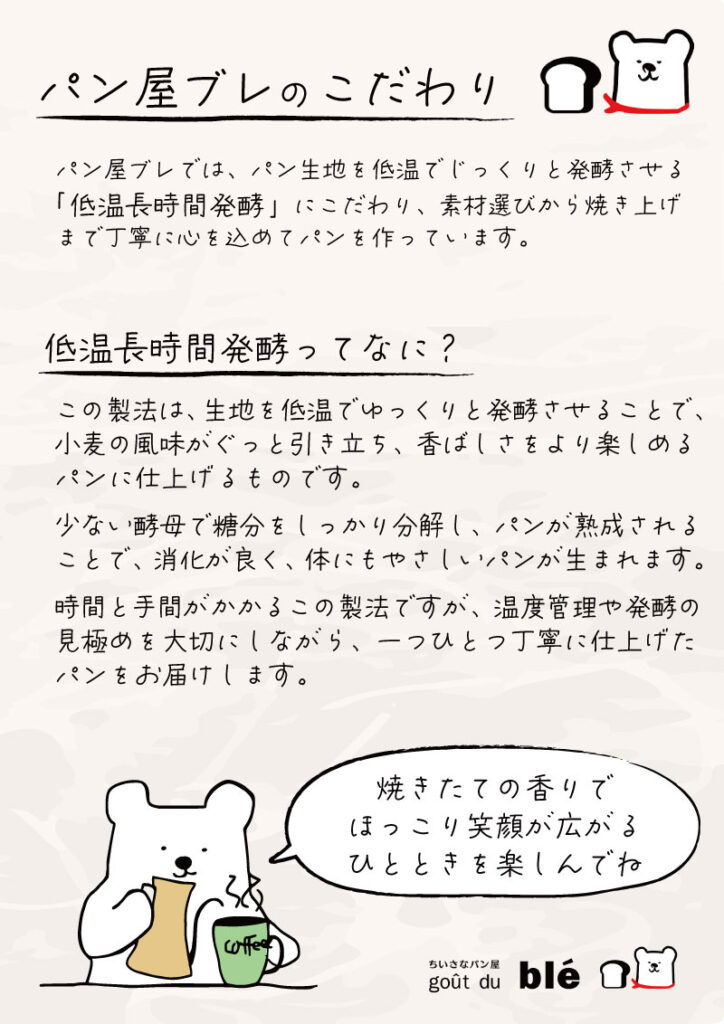 パン屋ブレのこだわり
パン屋ブレでは、パン生地を低温でじっくりと発酵させる
「低温長時間発酵」にこだわり、素材選びから焼き上げ
まで丁寧に心を込めてパンを作っています。
低温長時間発酵ってなに？
この製法は、生地を低温でゆっくりと発酵させることで、
小麦の風味がぐっと引き立ち、香ばしさをより楽しめる
パンに仕上げるものです。
少ない酵母で糖分をしっかり分解し、パンが熟成される
ことで、消化が良く、体にもやさしいパンが生まれます。
時間と手間がかかるこの製法ですが、温度管理や発酵の
見極めを大切にしながら、一つひとつ丁寧に仕上げた
パンをお届けします。
焼きたての香りで
ほっこり笑顔が広がる
ひとときを楽しんでね
coffee
ちいさなパン屋
goût du blé